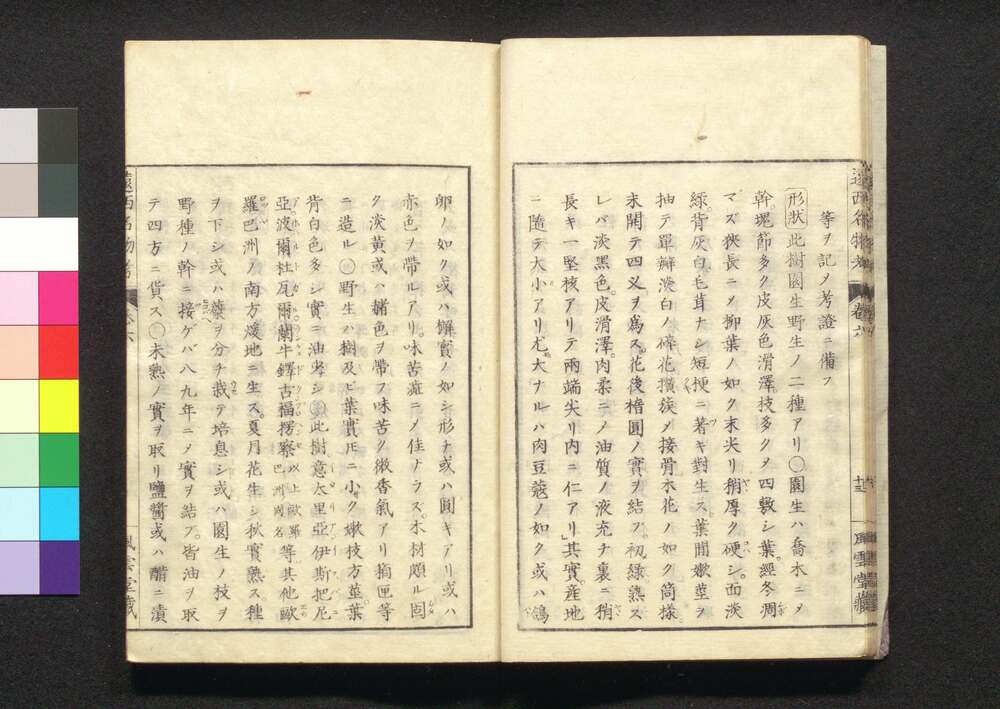 等ヲ記メ考證ニ備フ
形狀此樹園生野生ノ二種アリ○園生ハ喬木ニメ
幹塊節多ク皮灰色滑澤枝多クメ四敷シ葉經冬凋
マズ狹長ニメ柳葉ノ如ク末尖リ稍厚ク硬シ面淡
綠背灰白毛茸ナシ短梗ニ著キ對生ス葉間嫩莖ヲ
抽テ單瓣淡白ノ絛花攢簇メ接骨木花ノ如ク筒樣
末開テ四叉ヲ爲ス花後橢圓ノ實ヲ結フ初綠熟ス
レバ淡黑色皮滑澤肉柔ニメ油質ノ液充ナ裏ニ稍
長キ一堅核アリテ兩端尖リ內ニ仁アリ其實產地
ニ隨テ大小アリ尤大ナルハ肉豆蔻ノ如ク或ハ鴿
遠西名物考
卷六
十三
風雲堂藏
卵ノ如ク或ハ槲實ノ如シ形ナ或ハ圓キアリ或ハ
赤色ヲ帶ルアリ味苦澁ニメ佳ナラス木材頗ル固
ク淡黃或ハ赭色ヲ帶フ味苦ク微香氣アリ箱匣等
ニ造ル○野生ハ樹及ビ葉實𪜈ニ小ク嫩枝方莖葉
背白色多シ實ニ油少シ○此樹意太里亞伊斯把尼
亞波爾杜瓦爾蘭牛鐸古福楞察以上歐羅巴洲國名等其他歐
羅巴洲ノ南方煖地ニ生ス夏月花生シ秋實熟ス種
ヲ下シ或ハ蘖ヲ分チ栽テ培息シ或ハ園生ノ枝ヲ
野種ノ幹ニ接ゲバ八九年ニメ實ヲ結フ皆油ヲ取
テ四方ニ貨ス○未熟ノ實ヲ取リ鹽醬或ハ醋ニ漬
遠西名物考
卷六
風雲堂藏